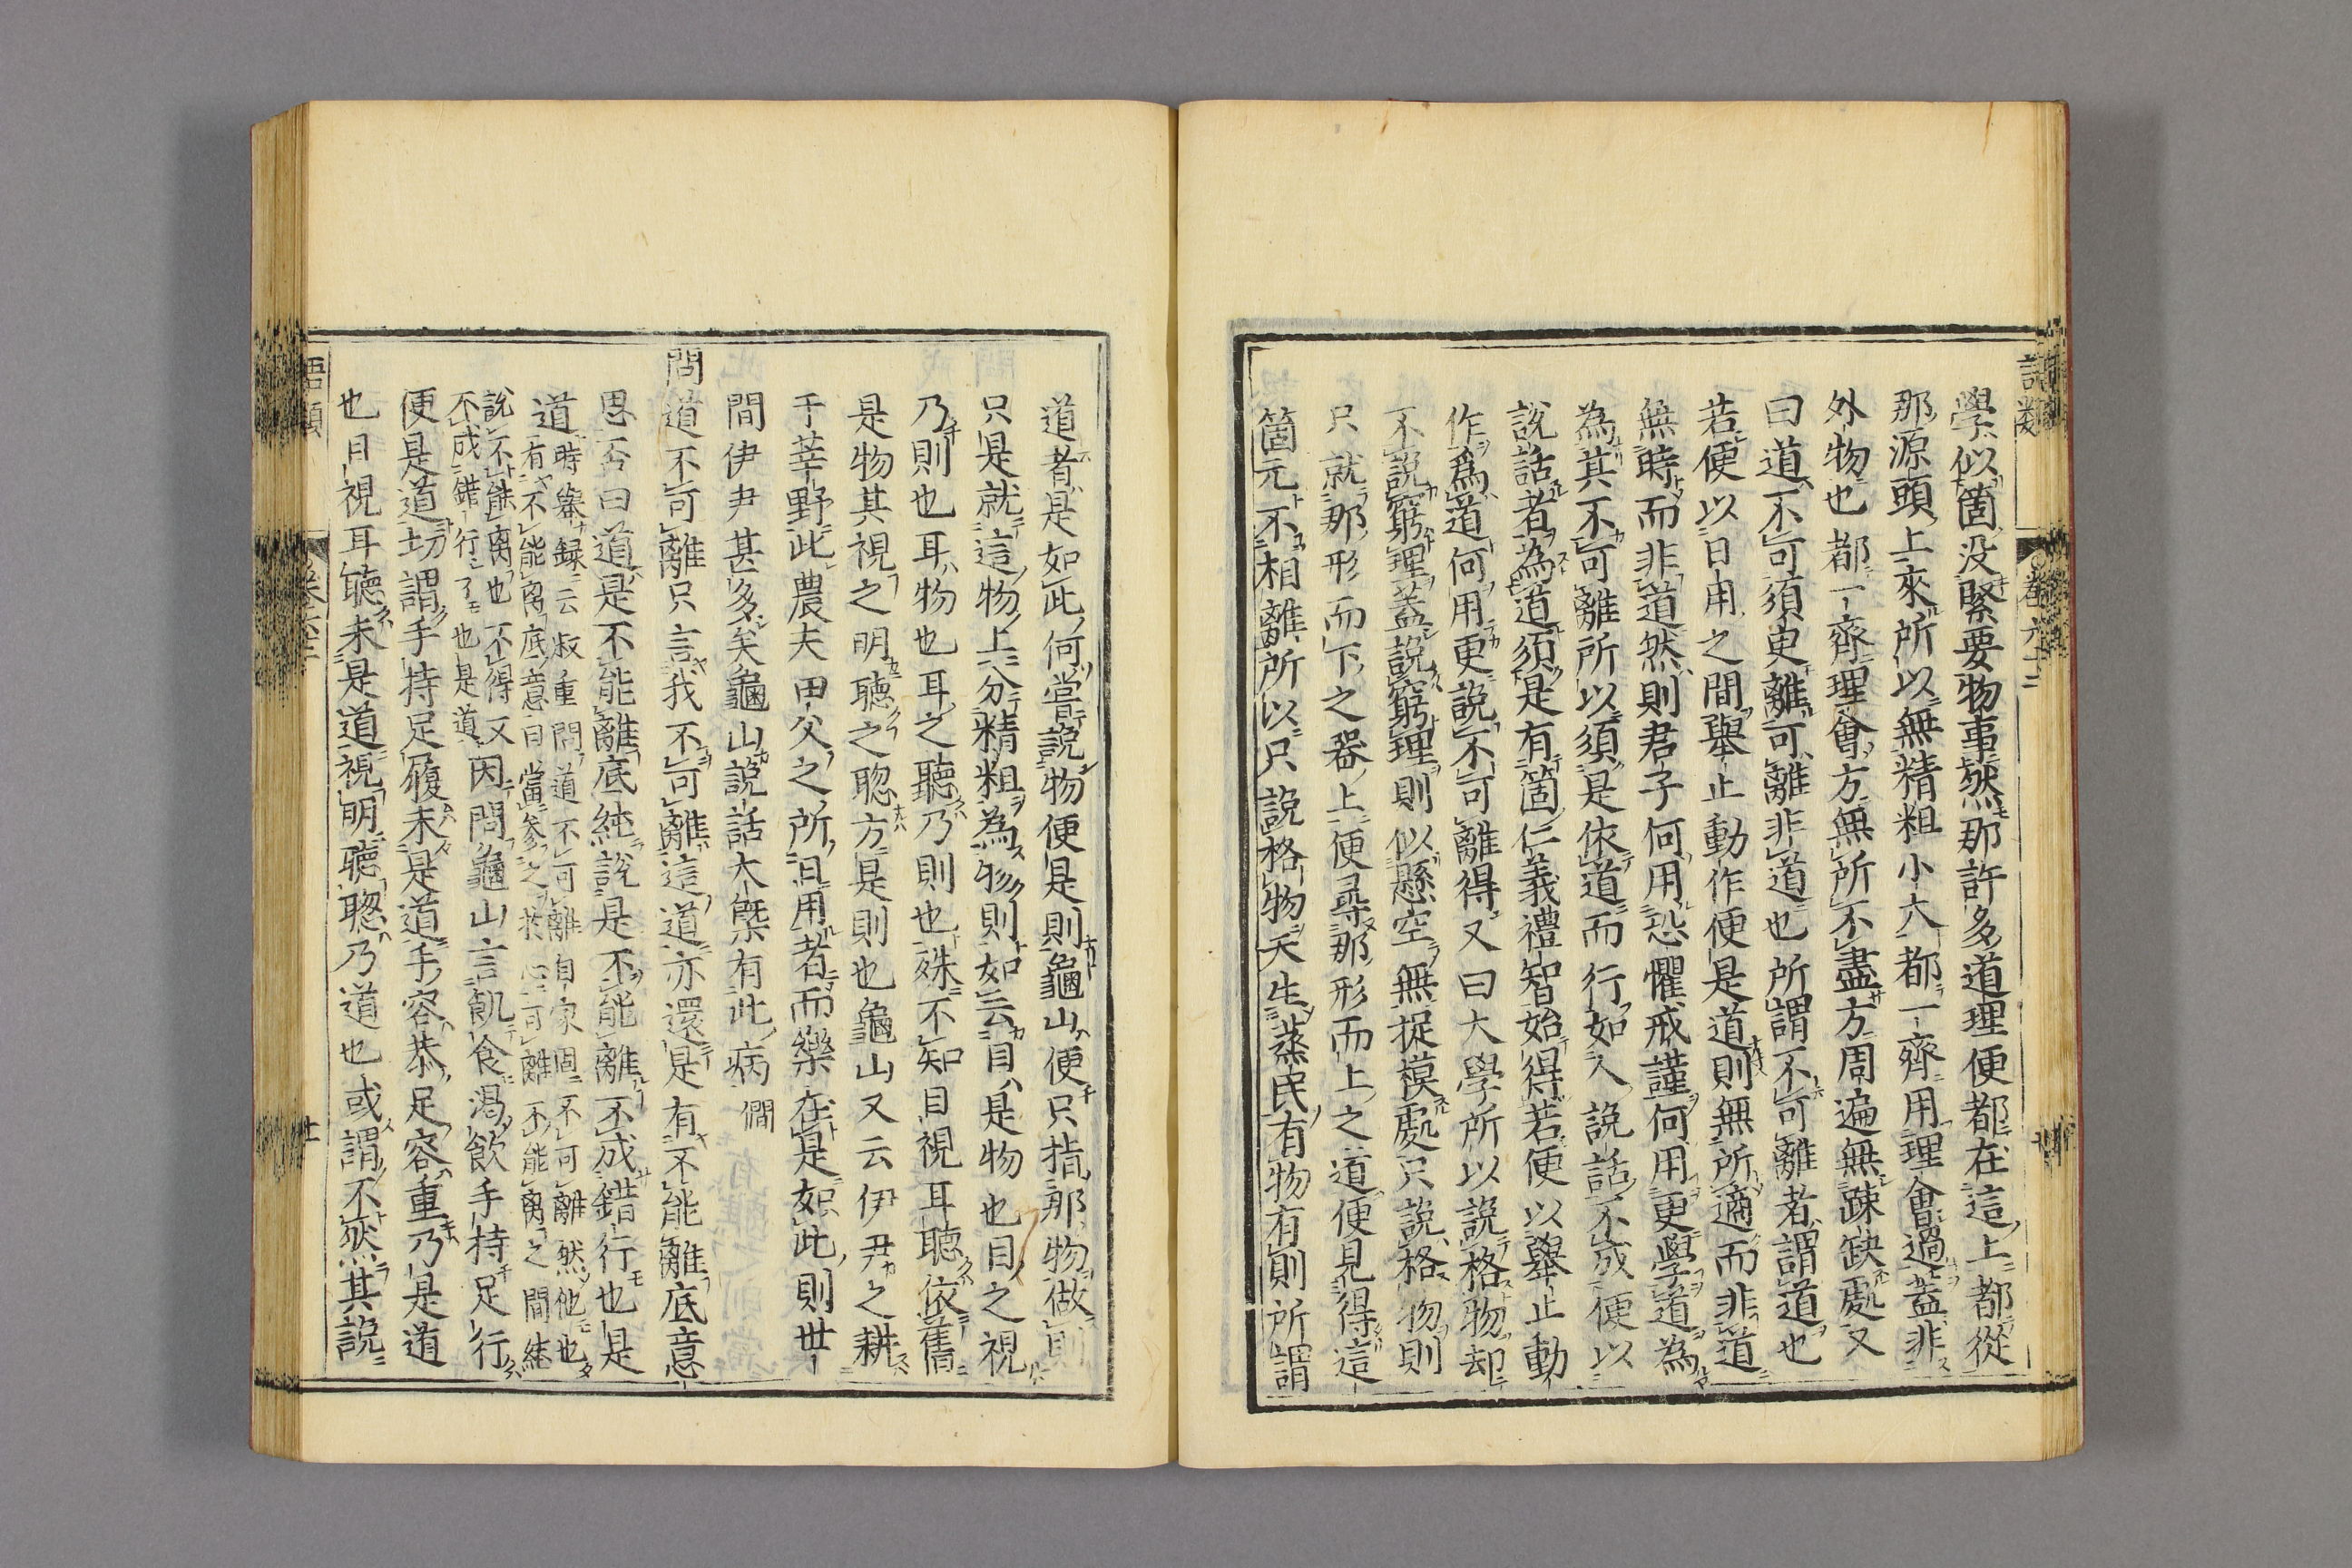 語類
卷六十二
學似箇没緊要物事然那許多道理便都在這上都從
那源頭上來所以無精粗小大都一齊用理會過蓋非
外物也都一齊理會方無所不盡方周遍無踈缺處又
曰道不可須臾離可離非道也所謂不可離者謂道也
若便以日用之間舉止動作便是道則無所適而非道
無時而非道然則君子何用恐懼戒謹何用更學道為
為其不可離所以須是依道而行如人說話不成便以
說話者為道須是有箇仁義禮智始得若便以舉止動
作爲道何用更說不可離得又曰大學所以說格物却
不說窮理蓋說窮理則似懸空無捉摸處只說格物則
只就那形而下之器上便尋那形而上之道便見得這
箇元不相離所以只說格物天生蒸民有物有則所謂
道者是如此何嘗說物便是則龜山便只指那物做則
只是就這物上分精粗為物則如云目是物也目之視
乃則也耳物也耳之聽乃則也殊不知目視耳聽依舊
是物其視之明聽之聰方是則也龜山又云伊尹之耕
于莘野此農夫田父之所日用者而樂在是如此則世
間伊尹甚多矣龜山說話大槩有此病 僩
問道不可離只言我不可離這道亦還是有不能離底意
思否曰道是不能離底純說是不能離不成錯行也是
道時舉録云叔重問道不可離自家固不可離然他也
有不能离底意曰當參之於心可離不能离之間純
說不能离也不得又
不成錯行了也是道因問龜山言飢食渴飲手持足行
便是道切謂手持足履未是道手容恭足容重乃是道
也目視耳聽未是道視明聽聰乃道也或謂不然其說
語類
十一